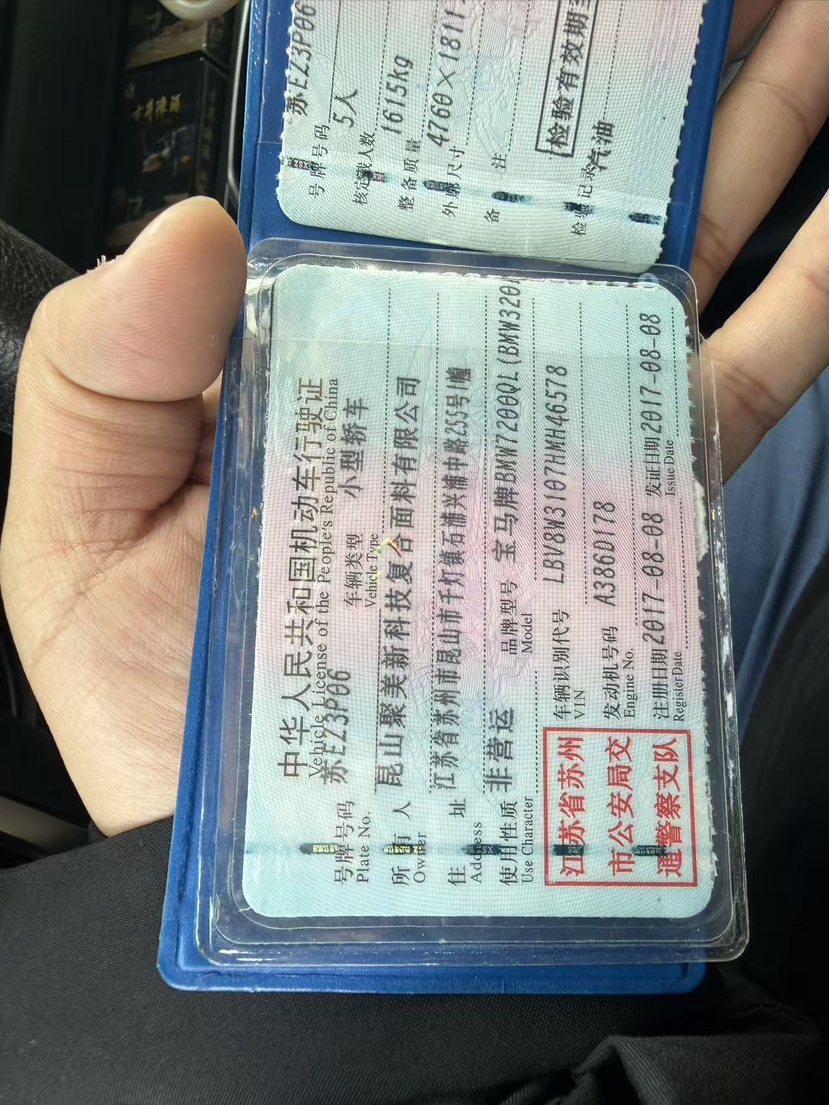 中华人民共和国机动车行驶证
Vehicle License of the People's Republic of China
号牌号码 苏EZ3P06 车辆类型 小型轿车
Plate No. Vehicle Type
所有人 昆山聚美新科技复合面料有限公司
Owner
住址 江苏省苏州市昆山市千灯镇石浦兴浦中路255号1幢
Address
使用性质 非营运 品牌型号 宝马牌BMW7200QL(BMW320
Use Character Model
江苏省苏州
市公安局交
通警察支队
车辆识别代号 LBV8W3107HMH46578
VIN
发动机号码 A386D178
Engine No.
注册日期 2017-08-08 发证日期 2017-08-08
Register Date Issue Date
号牌号码 苏EZ3P06
核定载人数 5人
整备质量 1615kg
外廓尺寸 4760×1811
备注
检验有效期至
检验记录 汽油